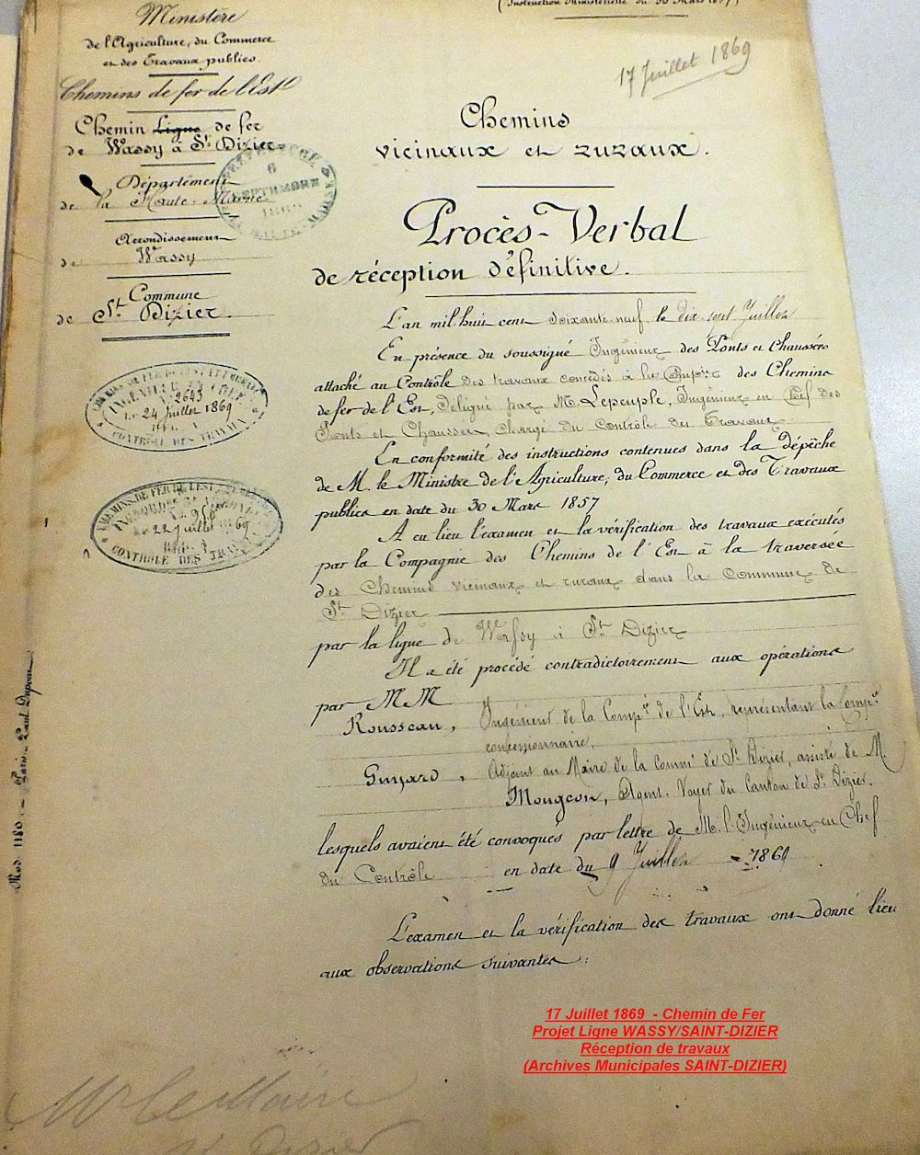 (Instruction Ministérielle du 30 Mars 1857)
Ministère
de l'Agriculture, du Commerce
et des Travaux publics.
Chemins de fer de l'Est
Chemin Ligne de fer
de Wassy à St Dizier
Département
de la Haute-Marne
Arrondissement
de Wassy
Commune
de St Dizier.
6
SEPTEMBRE
CHEMINS DE FER DE L'EST
INGENIEUR EN CHEF
N° 2643
Le 24 Juillet 1869
CONTROLE DES TRAVAUX
CHEMINS DE FER DE L'EST
N° 98
Le 22 Juillet 69
CONTROLE DES TRAVAUX
Mod. 1180. Paris. Paul Dupont
17 Juillet 1869
Chemins
vicinaux et ruraux.
Procès-Verbal
de réception définitive.
L'an mil huit cent soixante neuf le dix sept Juillet
En présence du soussigné Ingénieur des Ponts et Chaussées
attaché au Contrôle des travaux concédés à la Compie des Chemins
de fer de l'Est, délégué par M. Lepeuple, Ingénieur en Chef des
Ponts et Chaussées Chargé du Contrôle des Travaux
En conformité des instructions contenues dans la dépêche
de M. le Ministre de l'Agriculture, du Commerce et des Travaux
publics en date du 30 Mars 1857
A eu lieu l'examen et la vérification des travaux exécutés
par la Compagnie des Chemins de l'Est à la traversée
des Chemins vicinaux et ruraux dans la Commune de
St Dizier
par la ligne de Wassy à St Dizier
Il a été procédé contradictoirement aux opérations
par MM
Rousseau, Ingénieur de la Compie de l'Est, représentant la Compie
concessionnaire,
Guyard, Adjoint au Maire de la Comme de St Dizier, assisté de M.
Mougeot, Agent-Voyer du Canton de St Dizier.
lesquels avaient été convoqués par lettre de M. l'Ingénieur en Chef
du Contrôle en date du 9 Juillet 1869
L'examen et la vérification des travaux ont donné lieu
aux observations suivantes:
17 Juillet 1869 - Chemin de Fer
Projet Ligne WASSY/SAINT-DIZIER
Réception de travaux
(Archives Municipales SAINT-DIZIER)
Mr le Maire
St Dizier